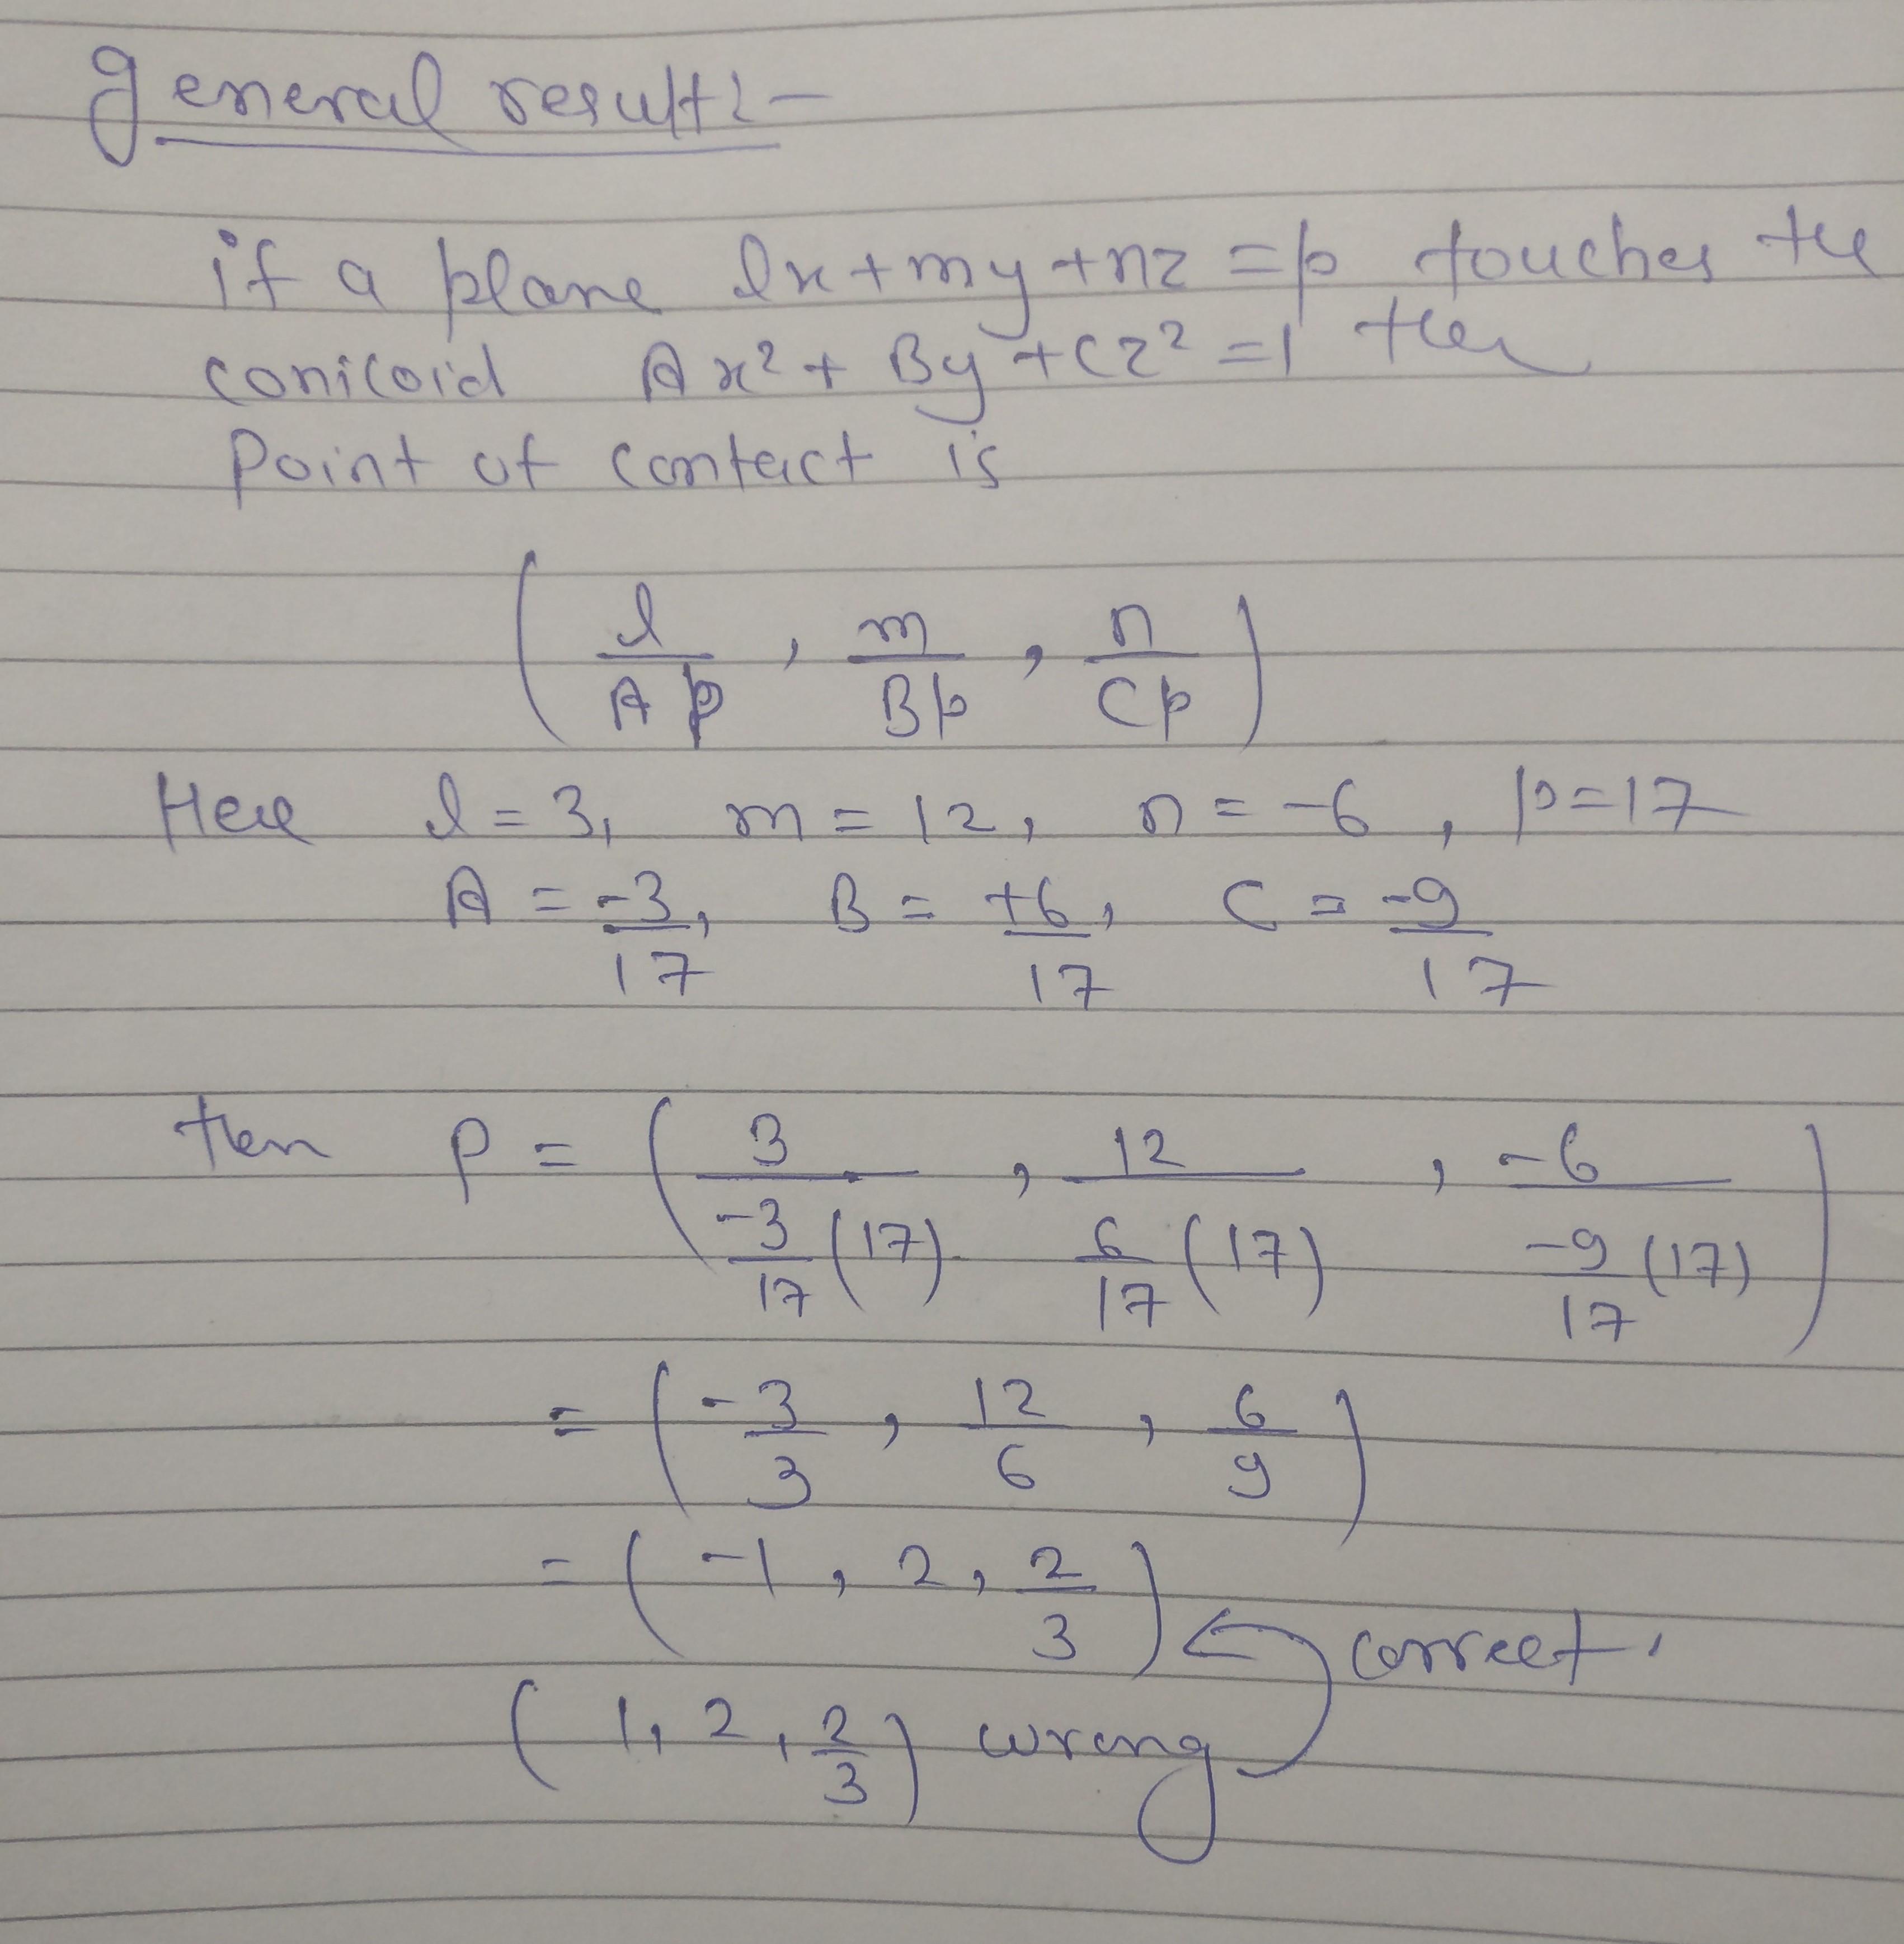 General result:-
if a plane lx+my+nz=p touches the
conicoid Ax²+By²+Cz²=1 then
Point of contact is
( l/Ap , m/Bp , n/Cp )
Here l=3, m=12, n=-6, p=17
A = -3/17, B = +6/17, C = -9/17
then P = ( 3/(-3/17 (17)) , 12/(6/17 (17)) , -6/(-9/17 (17)) )
= ( -3/3 , 12/6 , 6/9 )
= ( -1 , 2 , 2/3 ) correct.
( 1, 2, 2/3 ) wrong